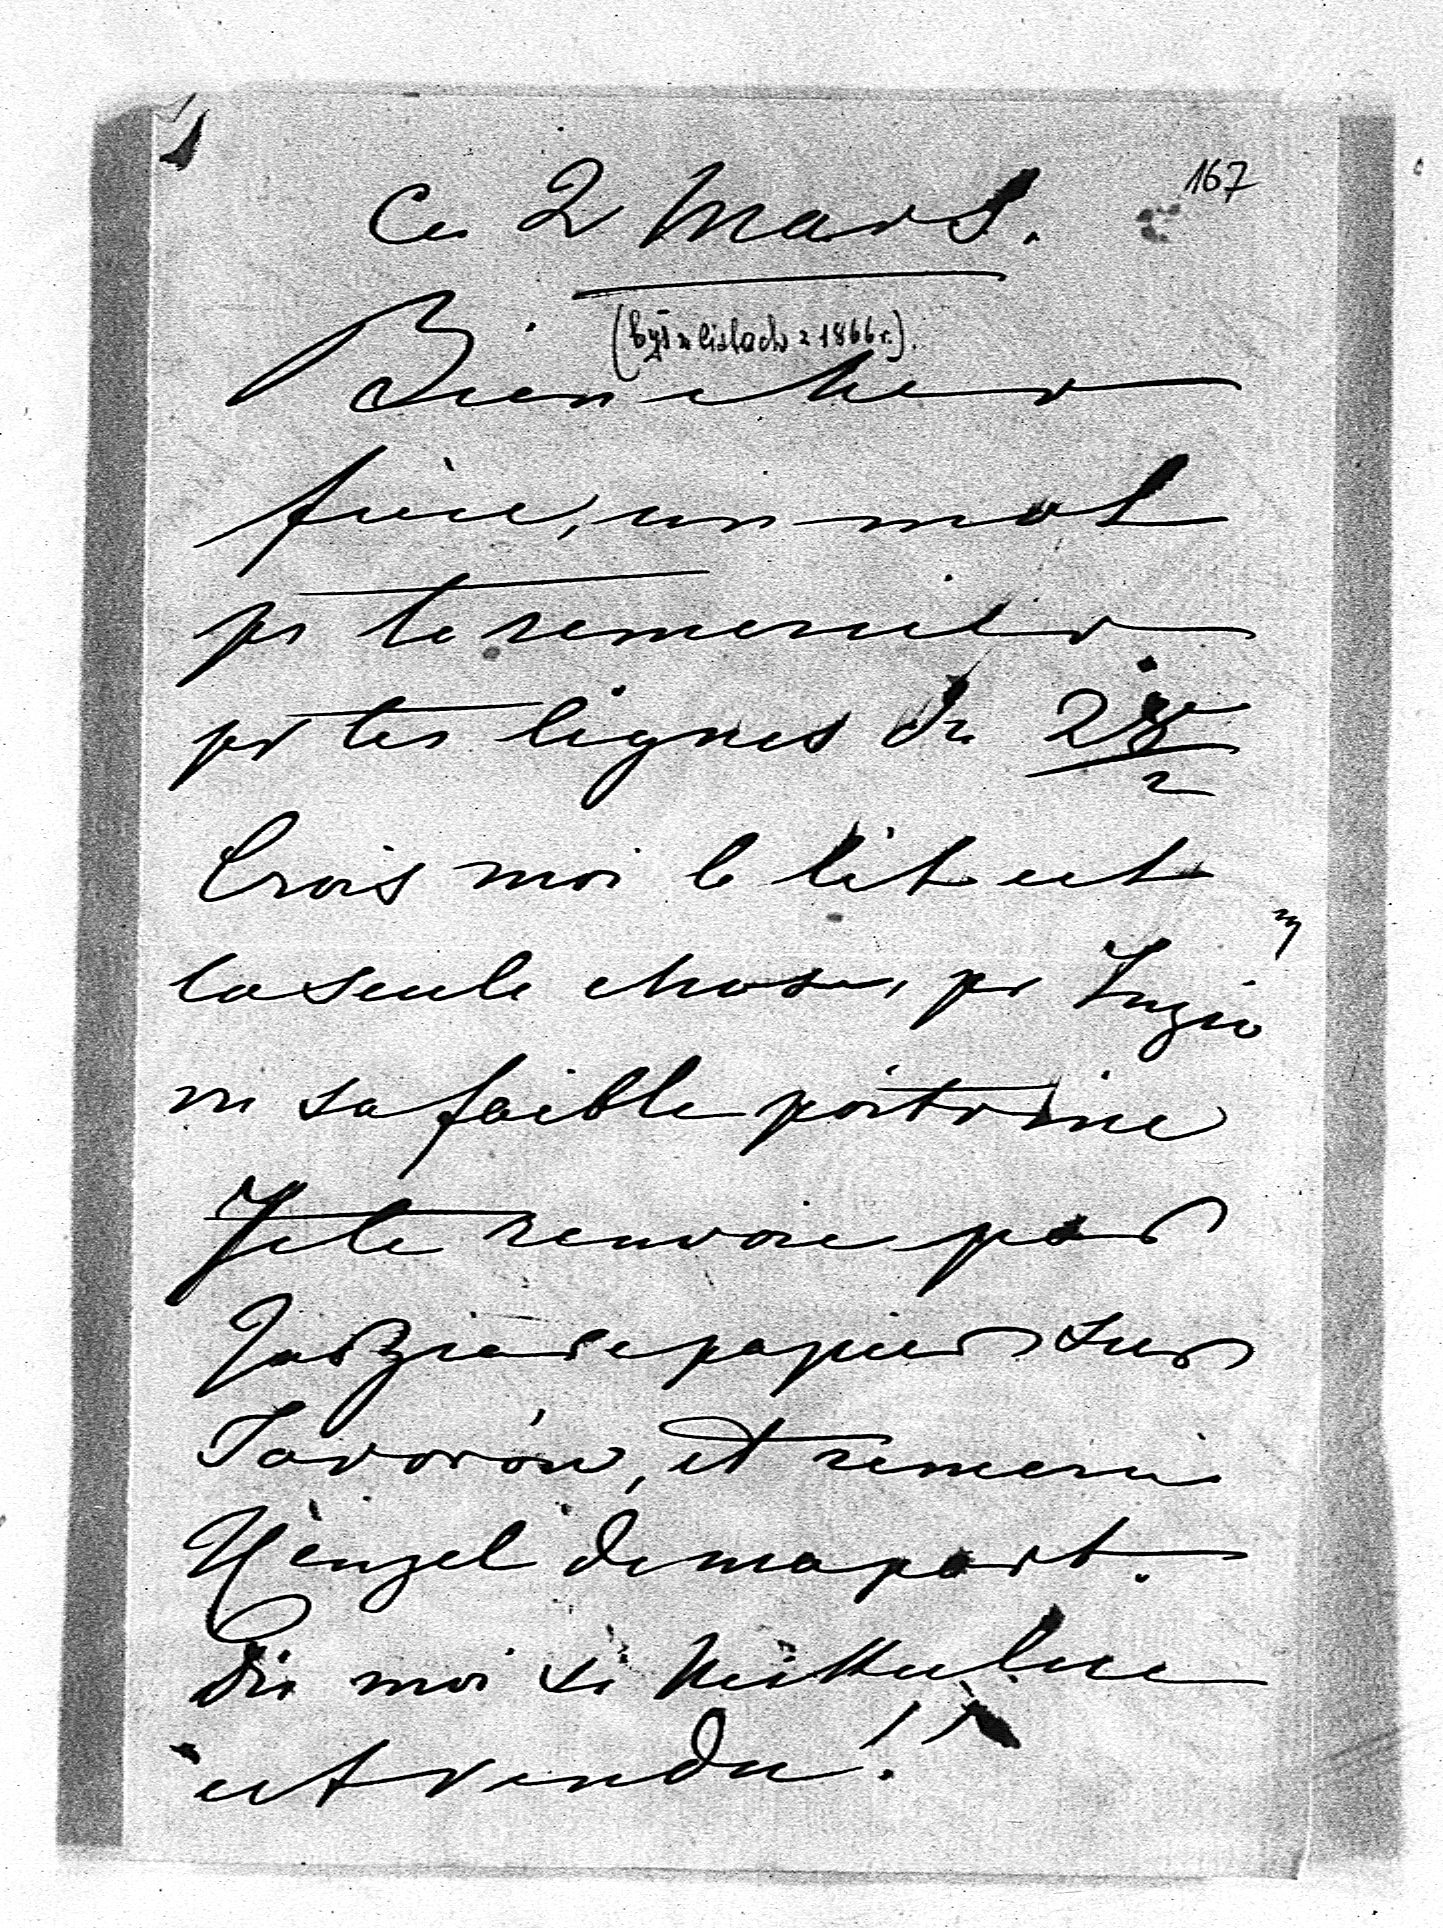 167
Ce 2 Mars.
(był w listach z 1866 r.).
Bien cher
frère, un mot
pr te remercier
pr tes lignes du 28/2
Crois moi le lit est
la seule chose, pr Inzio
vu sa faible poitrine
Je te renvoie par
Józia le papier sur
Javorów, et remerci
Hénzel de ma part.
Dis moi si
est vendu!!